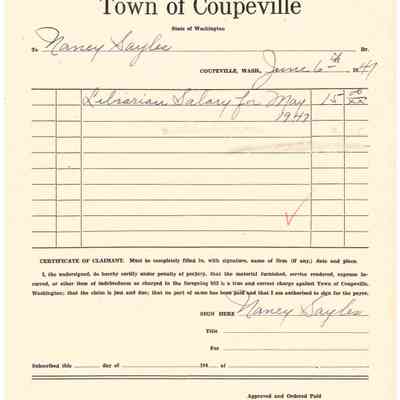 Town of Coupeville
State of Washington
To Nancy Sayles Dr.
COUPEVILLE, WASH., June 6th 1947
Librarian Salary for May 15 00/xx
1947
CERTIFICATE OF CLAIMANT. Must be completely filled in, with signature, name of firm (if any,) date and place.
I, the undersigned, do hereby certify under penalty of perjury, that the material furnished, service rendered, expense in-
curred, or other item of indebtedness as charged in the foregoing bill is a true and correct charge against Town of Coupeville,
Washington; that the claim is just and due; that no part of same has been paid and that I am authorized to sign for the payee.
SIGN HERE Nancy Sayles
Title
For
Subscribed this day of 194 of
Approved and Ordered Paid